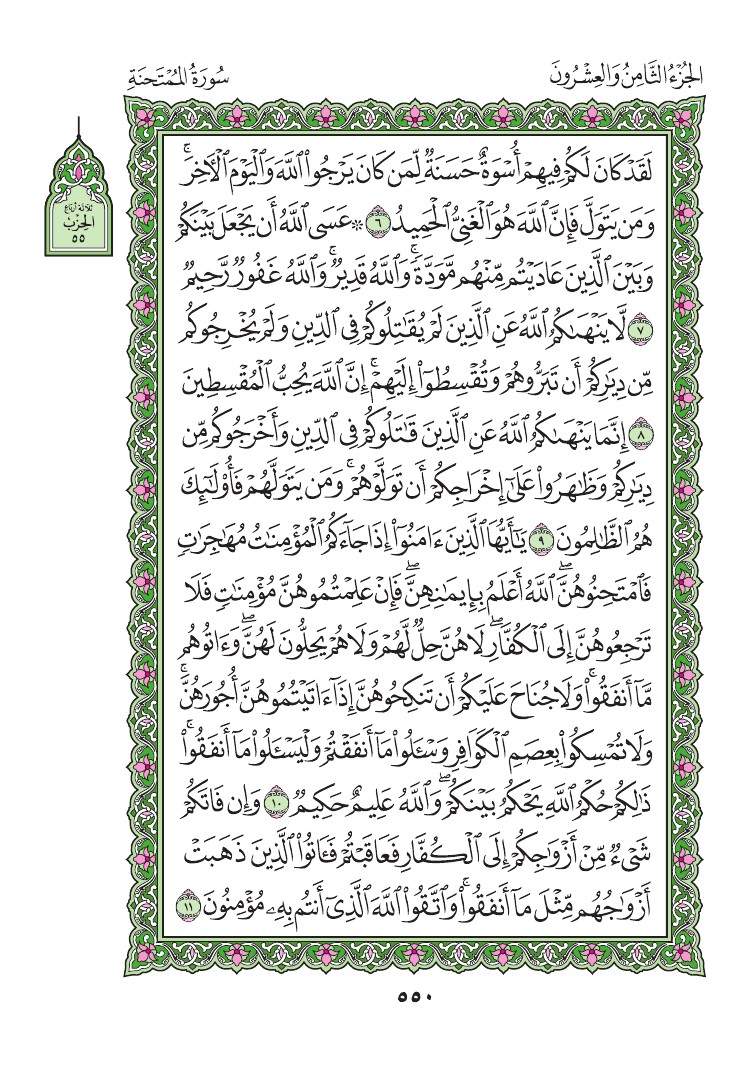 الجُزْءُ الثَّامِنُ وَالعِشْرُونَ
سُورَةُ المُمْتَحنَةِ
ثلاثة أرباع
الحِزْبْ
٥٥
لَقَدْ كَانَ لَكُمْ فِيهِمْ أُسْوَةٌ حَسَنَةٌ لِّمَن كَانَ يَرْجُوا۟ ٱللَّهَ وَٱلْيَوْمَ ٱلْأَخِرَ ۚ
وَمَن يَتَوَلَّ فَإِنَّ ٱللَّهَ هُوَ ٱلْغَنِىُّ ٱلْحَمِيدُ ٦ ۞ عَسَى ٱللَّهُ أَن يَجْعَلَ بَيْنَكُمْ
وَبَيْنَ ٱلَّذِينَ عَادَيْتُم مِّنْهُم مَّوَدَّةً ۚ وَٱللَّهُ قَدِيرٌ ۚ وَٱللَّهُ غَفُورٌ رَّحِيمٌ
٧ لَّا يَنْهَىٰكُمُ ٱللَّهُ عَنِ ٱلَّذِينَ لَمْ يُقَٰتِلُوكُمْ فِى ٱلدِّينِ وَلَمْ يُخْرِجُوكُم
مِّن دِيَٰرِكُمْ أَن تَبَرُّوهُمْ وَتُقْسِطُوٓا۟ إِلَيْهِمْ ۚ إِنَّ ٱللَّهَ يُحِبُّ ٱلْمُقْسِطِينَ
٨ إِنَّمَا يَنْهَىٰكُمُ ٱللَّهُ عَنِ ٱلَّذِينَ قَٰتَلُوكُمْ فِى ٱلدِّينِ وَأَخْرَجُوكُم مِّن
دِيَٰرِكُمْ وَظَٰهَرُوا۟ عَلَىٰٓ إِخْرَاجِكُمْ أَن تَوَلَّوْهُمْ ۚ وَمَن يَتَوَلَّهُمْ فَأُو۟لَٰٓئِكَ
هُمُ ٱلظَّٰلِمُونَ ٩ يَٰٓأَيُّهَا ٱلَّذِينَ ءَامَنُوٓا۟ إِذَا جَآءَكُمُ ٱلْمُؤْمِنَٰتُ مُهَٰجِرَٰتٍ
فَٱمْتَحِنُوهُنَّ ۖ ٱللَّهُ أَعْلَمُ بِإِيمَٰنِهِنَّ ۖ فَإِنْ عَلِمْتُمُوهُنَّ مُؤْمِنَٰتٍ فَلَا
تَرْجِعُوهُنَّ إِلَى ٱلْكُفَّارِ ۖ لَا هُنَّ حِلٌّ لَّهُمْ وَلَا هُمْ يَحِلُّونَ لَهُنَّ ۖ وَءَاتُوهُم
مَّآ أَنفَقُوا۟ ۚ وَلَا جُنَاحَ عَلَيْكُمْ أَن تَنكِحُوهُنَّ إِذَآ ءَاتَيْتُمُوهُنَّ أُجُورَهُنَّ ۚ
وَلَا تُمْسِكُوا۟ بِعِصَمِ ٱلْكَوَافِرِ وَسْـَٔلُوا۟ مَآ أَنفَقْتُمْ وَلْيَسْـَٔلُوا۟ مَآ أَنفَقُوا۟ ۚ
ذَٰلِكُمْ حُكْمُ ٱللَّهِ يَحْكُمُ بَيْنَكُمْ ۖ وَٱللَّهُ عَلِيمٌ حَكِيمٌ ١٠ وَإِن فَاتَكُمْ
شَىْءٌ مِّنْ أَزْوَٰجِكُمْ إِلَى ٱلْكُفَّارِ فَعَاقَبْتُمْ فَـَٔاتُوا۟ ٱلَّذِينَ ذَهَبَتْ
أَزْوَٰجُهُم مِّثْلَ مَآ أَنفَقُوا۟ ۚ وَٱتَّقُوا۟ ٱللَّهَ ٱلَّذِىٓ أَنتُم بِهِۦ مُؤْمِنُونَ ١١
٥٥٠